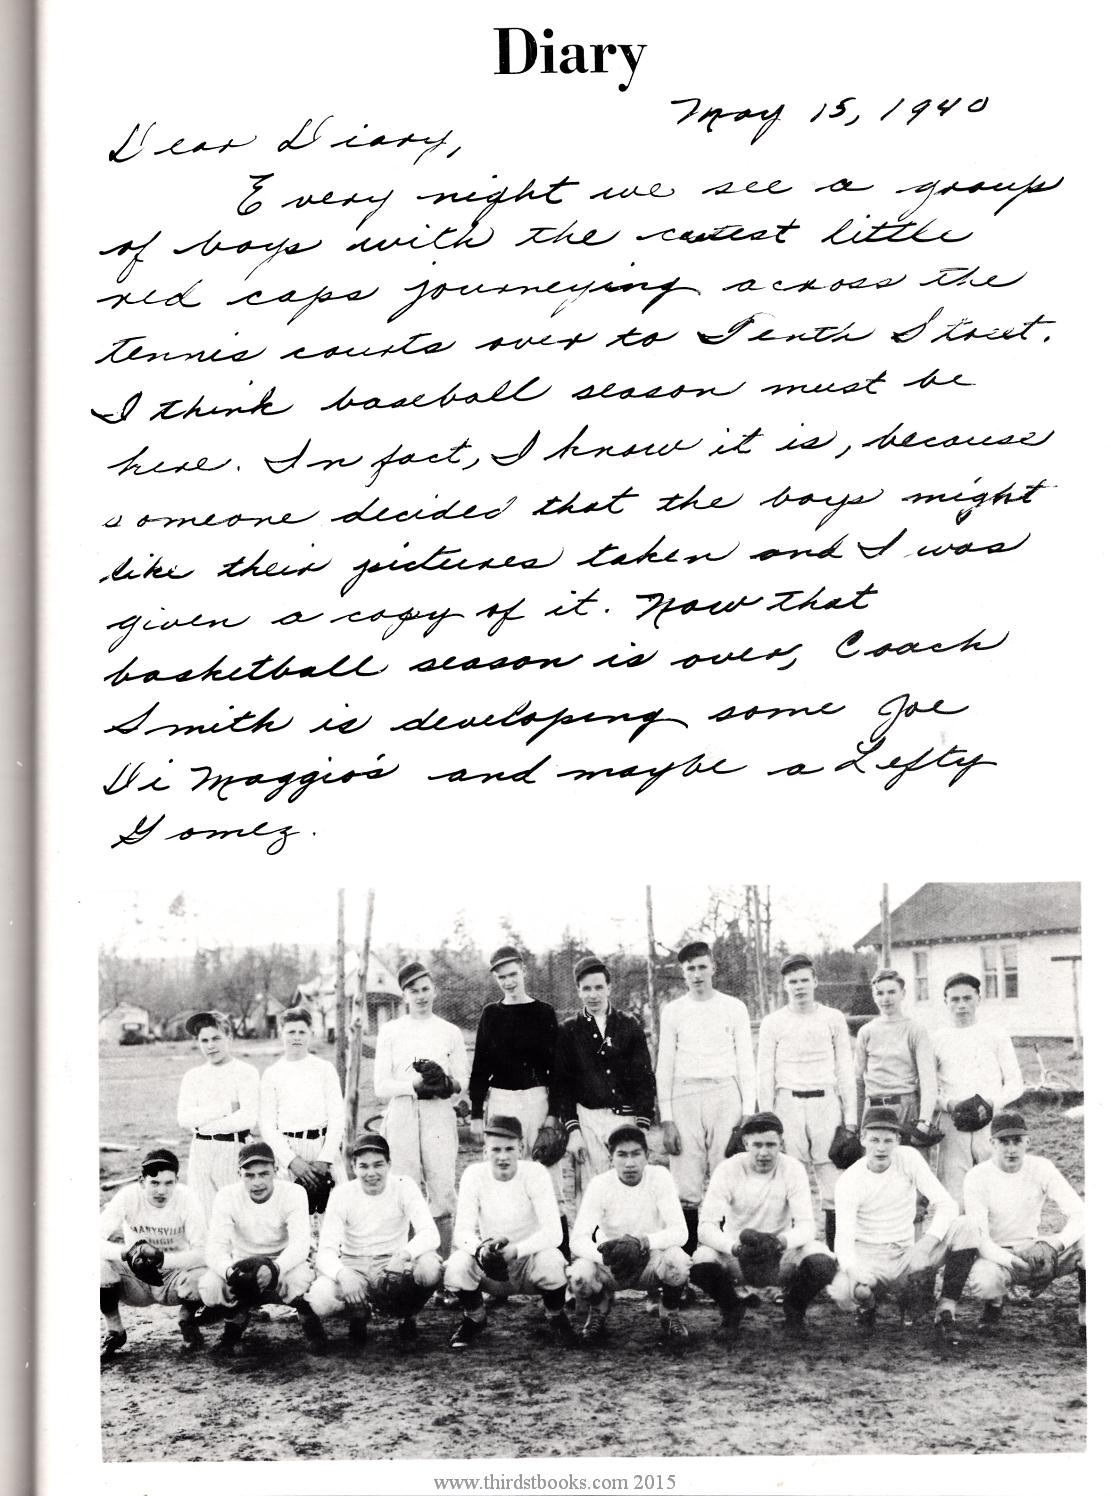 Diary
May 15, 1940
Dear Diary,
Every night we see a group
of boys with the cutest little
red caps journeying across the
tennis courts over to Tenth Street.
I think baseball season must be
here. In fact, I know it is, because
someone decided that the boys might
like their pictures taken and I was
given a copy of it. Now that
basketball season is over, Coach
Smith is developing some Joe
Di Maggio's and maybe a Lefty
Gomez.
MARYSVILLE
HIGH
www.thirdstbooks.com 2015